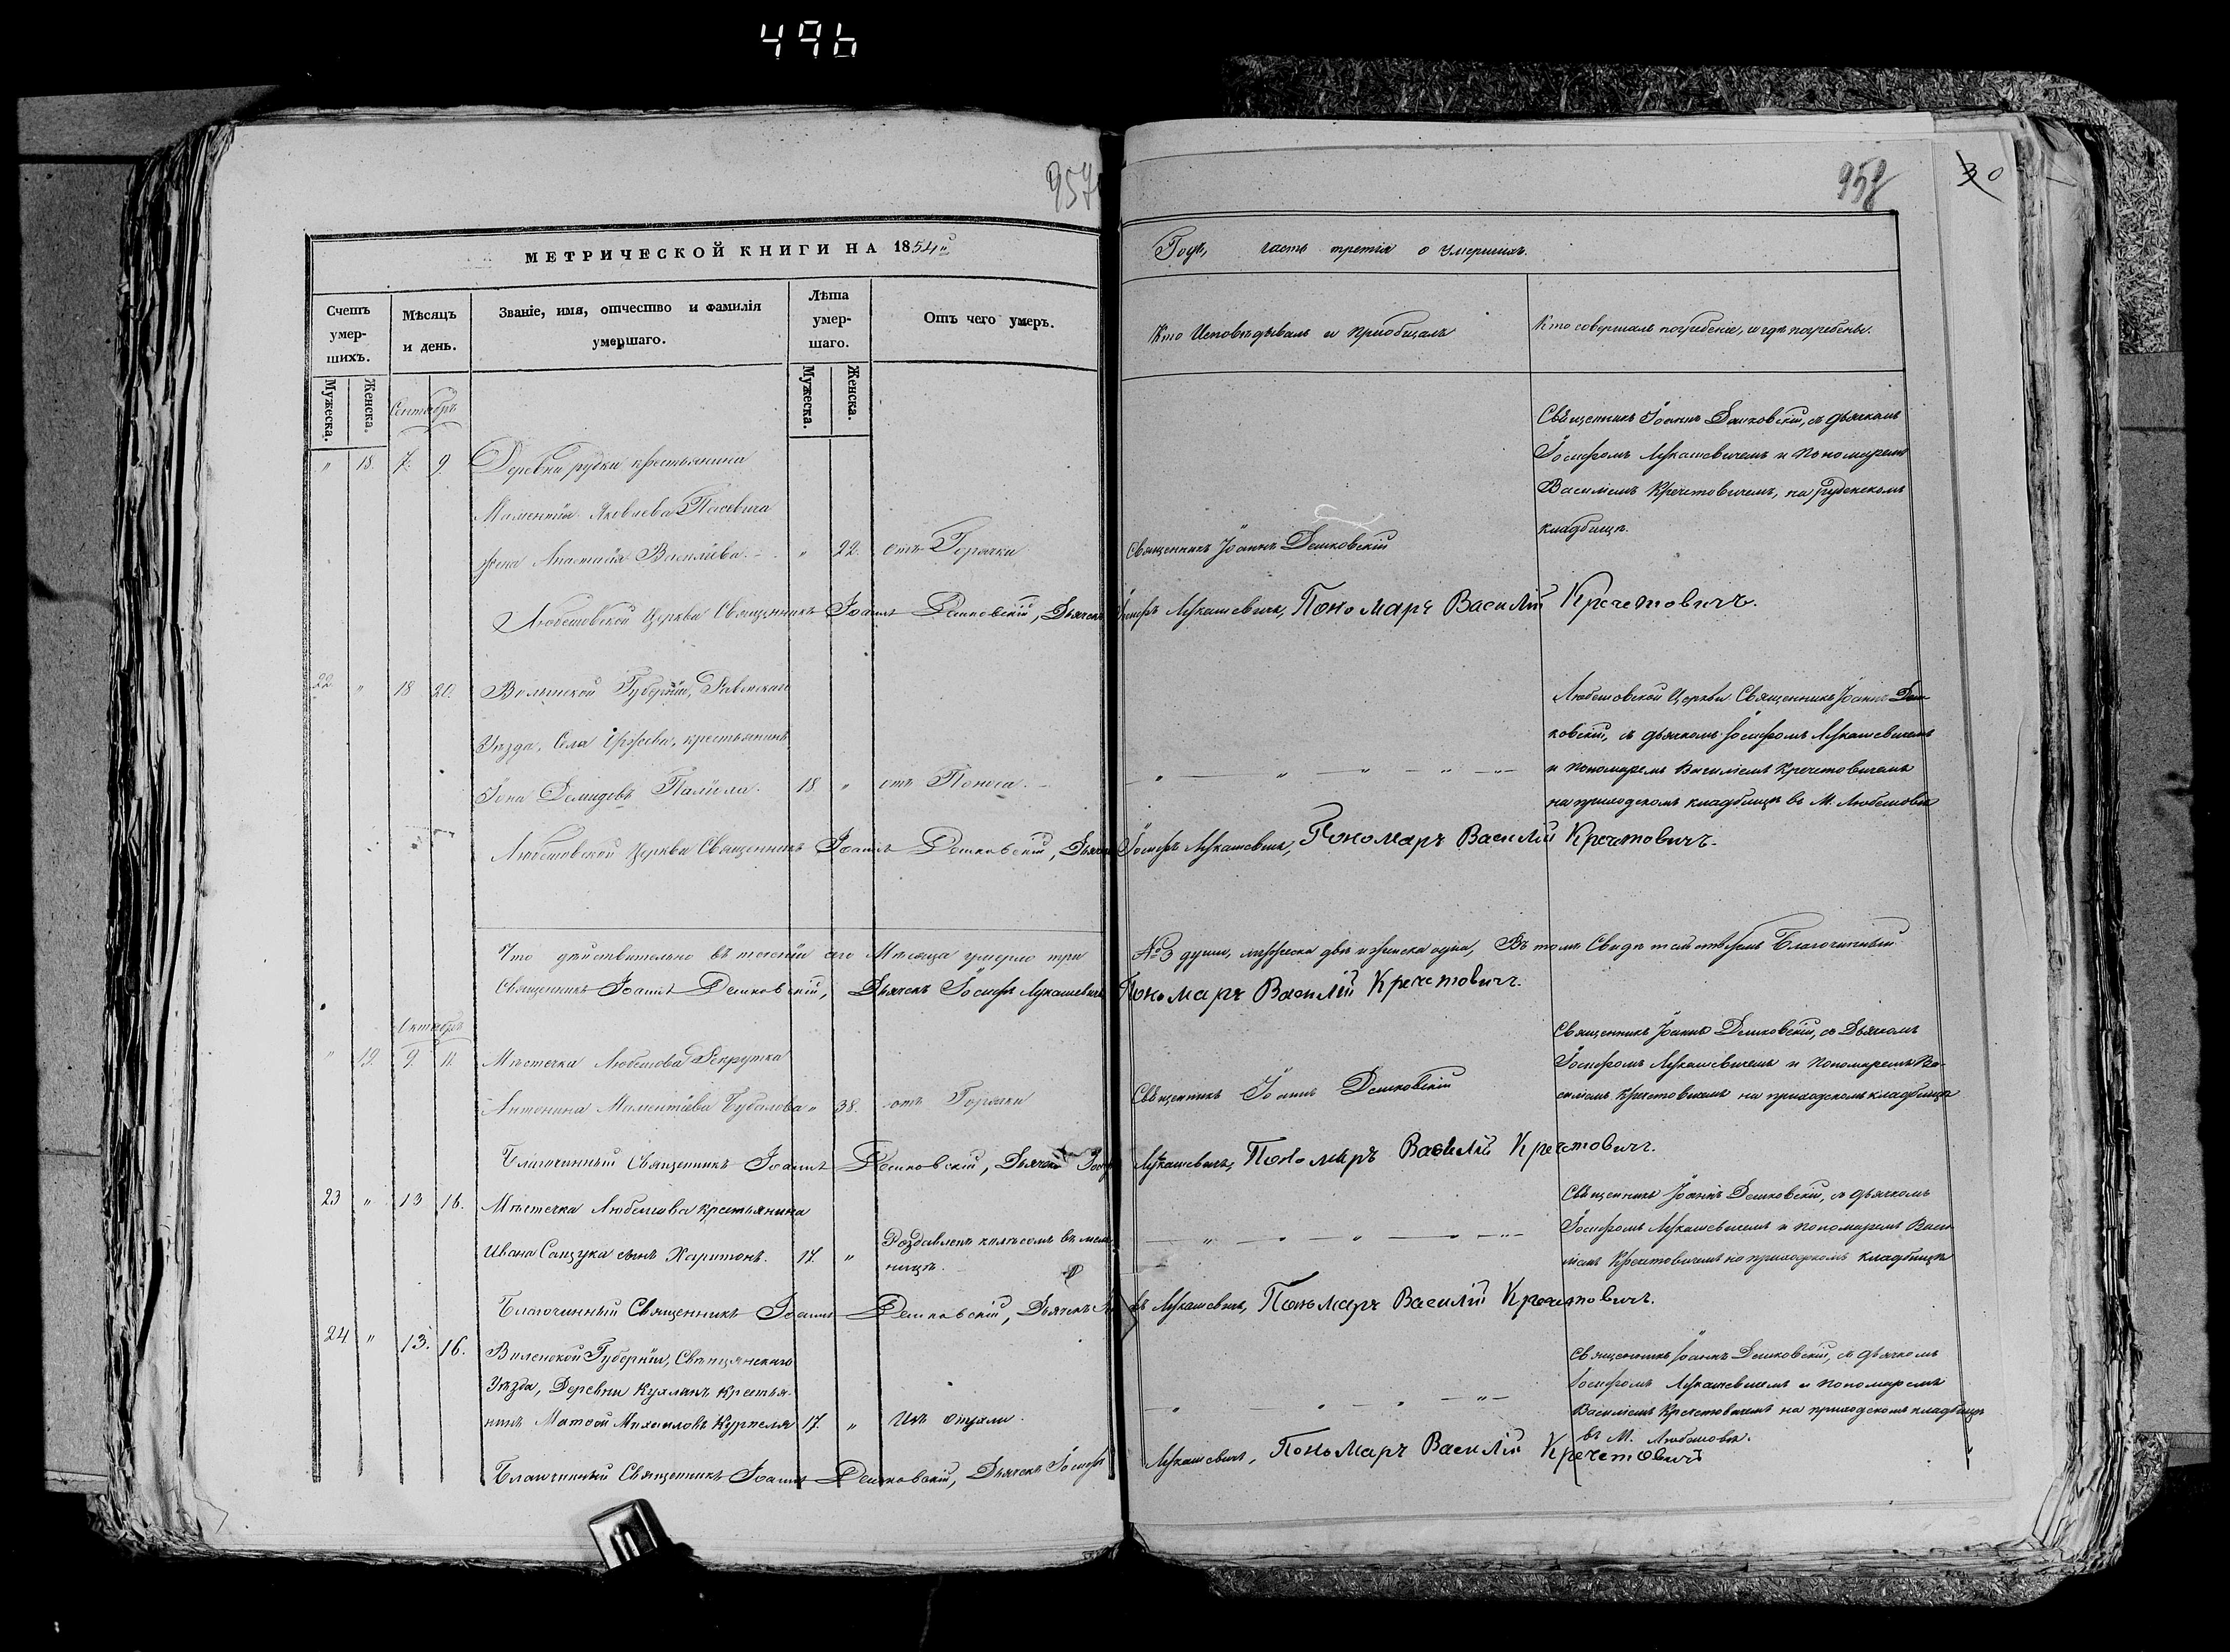 496
957
958
30
МЕТРИЧЕСКОЙ КНИГИ НА 1854й
Годъ, часть третія о умершихъ.
Счетъ умер-
шихъ.
Мѣсяцъ
и день.
Званіе, имя, отчество и фамилія
умершаго.
Лѣта
умер-
шаго.
Отъ чего умеръ.
Кто Исповѣдывалъ и приобщалъ
Кто совершалъ погребеніе, и гдѣ погребены.
Мужеска.
Женска.
Мужеска.
Женска.
Сентябрь
" 18. 7. 9. Деревни рудки крестьянина
Яковлева
жена Анастасія Василіева. " 22. отъ Горячки
Священникъ Іоаннъ Демковскій
Священникъ Іоаннъ Демковскій, съ дьячкомъ
Іосифомъ Лукашевичемъ и Пономаремъ
Василіемъ Кречетовичемъ, на рудскомъ
кладбищѣ.
Любешовской Церкви Священникъ Іоаннъ Демковскій, Дьячекъ Іосифъ Лукашевичъ, Пономарь Василій Кречетовичъ.
22 " 18 20. Волынской Губерніи, Ровенскаго
Уѣзда, Села крестьянинъ
Іона Демидовъ 18 " отъ Поноса.
Любешовской Церкви Священникъ Іоаннъ Дем-
ковскій, съ дьячкомъ Іосифомъ Лукашевичемъ
и пономаремъ Василіемъ Кречетовичемъ
на приходскомъ кладбищѣ въ М. Любешовѣ
Любешовской Церкви Священникъ Іоаннъ Демковскій, Дьячекъ Іосифъ Лукашевичъ, Пономарь Василій Кречетовичъ.
Что дѣйствительно въ теченіи сего Мѣсяца умерло три № 3 души, мужеска двѣ и женска одна, Въ томъ Свидѣтельствуемъ Благочинный
Священникъ Іоаннъ Демковскій, Дьячекъ Іосифъ Лукашевичъ Пономарь Василій Кречетовичъ.
Октябрь
" 19. 9. 11. Мѣстечка Любешова Рекрутка
Антонина " 38. отъ Горячки
Священникъ Іоаннъ Демковскій
Священникъ Іоаннъ Демковскій, съ Дьячкомъ
Іосифомъ Лукашевичемъ и Пономаремъ Ва-
силіемъ Кречетовичемъ на приходскомъ кладбищѣ
Благочинный Священникъ Іоаннъ Демковскій, Дьячекъ Лукашевичъ, Пономарь Василій Кречетовичъ.
23 " 13 16. Мѣстечка Любешова крестьянина
Ивана сынъ Харитонъ. 17. " Роздавленъ колесомъ въ мель-
ницѣ.
Священникъ Іоаннъ Демковскій, съ дьячкомъ
Іосифомъ Лукашевичемъ и пономаремъ Васи-
ліемъ Кречетовичемъ на приходскомъ кладбищѣ
Благочинный Священникъ Іоаннъ Демковскій, Дьячекъ Лукашевичъ, Пономарь Василій Кречетовичъ.
24 " 13. 16. Виленской Губерніи, Свѣнцянскаго
Уѣзда, Деревни крестья-
нинъ Михаиловъ 17. "
Священникъ Іоаннъ Демковскій, съ дьячкомъ
Іосифомъ Лукашевичемъ и пономаремъ
Василіемъ Кречетовичемъ на приходскомъ кладбищѣ
въ М. Любешовѣ.
Благочинный Священникъ Іоаннъ Демковскій, Дьячекъ Іосифъ Лукашевичъ, Пономарь Василій Кречетовичъ